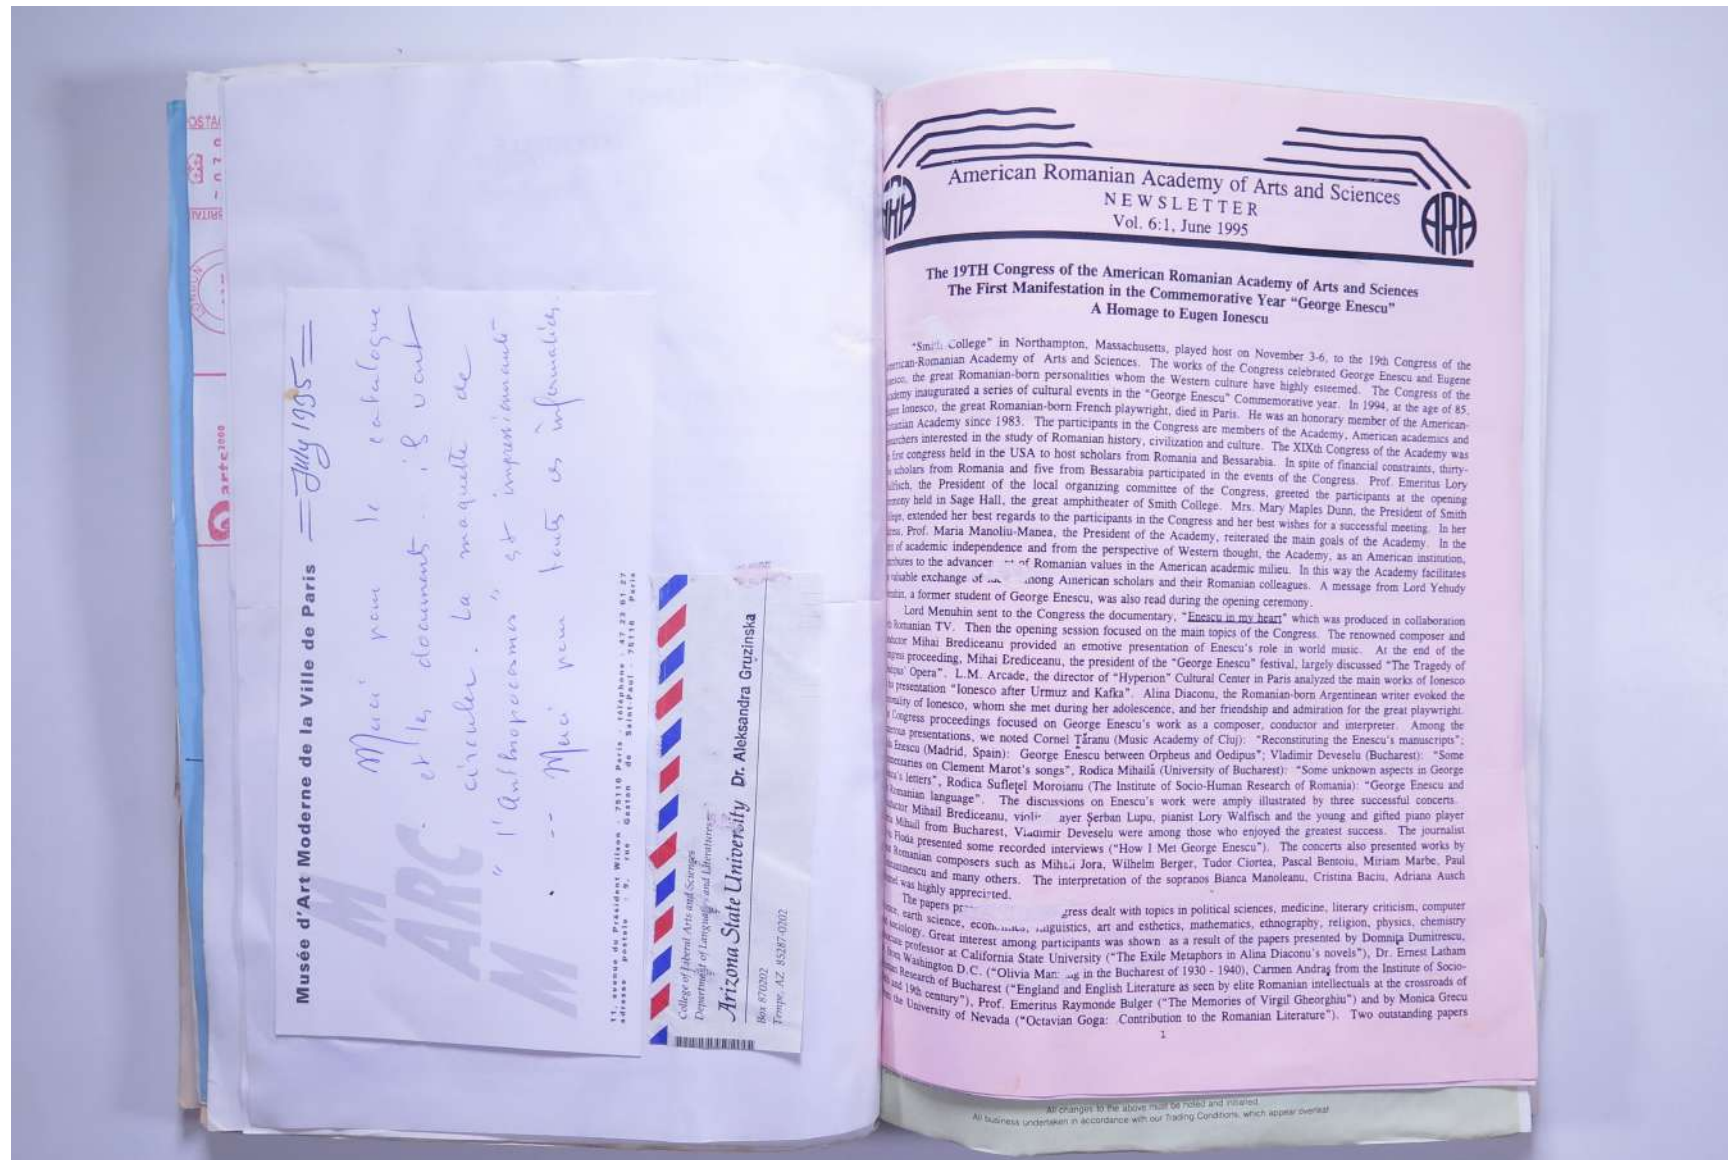 Musée d'Art Moderne de la Ville de Paris = July 1995 =
Merci pour le catalogue
et les documents. ils vont
circuler. La maquette de
"l'Anthropocosmos" est impressionnante
... Merci pour toutes ces informations.
MARC
M
11, avenue du Président Wilson - 75116 Paris - téléphone : 47 23 61 27
adresse postale - 9, rue Gaston de Saint-Paul - 75116 Paris
College of Liberal Arts and Sciences
Department of Languages and Literatures
Arizona State University Dr. Aleksandra Gruzinska
Box 870202
Tempe, AZ 85287-0202
arte2000
American Romanian Academy of Arts and Sciences
NEWSLETTER
Vol. 6:1, June 1995
ARA
ARA
The 19TH Congress of the American Romanian Academy of Arts and Sciences
The First Manifestation in the Commemorative Year "George Enescu"
A Homage to Eugen Ionescu
"Smith College" in Northampton, Massachusetts, played host on November 3-6, to the 19th Congress of the
American-Romanian Academy of Arts and Sciences. The works of the Congress celebrated George Enescu and Eugene
the great Romanian-born personalities whom the Western culture have highly esteemed. The Congress of the
Academy inaugurated a series of cultural events in the "George Enescu" Commemorative year. In 1994, at the age of 85,
Ionesco, the great Romanian-born French playwright, died in Paris. He was an honorary member of the American-
Romanian Academy since 1983. The participants in the Congress are members of the Academy, American academics and
researchers interested in the study of Romanian history, civilization and culture. The XIXth Congress of the Academy was
first congress held in the USA to host scholars from Romania and Bessarabia. In spite of financial constraints, thirty-
scholars from Romania and five from Bessarabia participated in the events of the Congress. Prof. Emeritus Lory
Walfisch, the President of the local organizing committee of the Congress, greeted the participants at the opening
ceremony held in Sage Hall, the great amphitheater of Smith College. Mrs. Mary Maples Dunn, the President of Smith
College, extended her best regards to the participants in the Congress and her best wishes for a successful meeting. In her
Prof. Maria Manoliu-Manea, the President of the Academy, reiterated the main goals of the Academy. In the
of academic independence and from the perspective of Western thought, the Academy, as an American institution,
to the of Romanian values in the American academic milieu. In this way the Academy facilitates
valuable exchange of among American scholars and their Romanian colleagues. A message from Lord Yehudy
Menuhin, a former student of George Enescu, was also read during the opening ceremony.
Lord Menuhin sent to the Congress the documentary, "Enescu in my heart" which was produced in collaboration
Romanian TV. Then the opening session focused on the main topics of the Congress. The renowned composer and
Mihai Brediceanu provided an emotive presentation of Enescu's role in world music. At the end of the
proceeding, Mihai Brediceanu, the president of the "George Enescu" festival, largely discussed "The Tragedy of
Opera". L.M. Arcade, the director of "Hyperion" Cultural Center in Paris analyzed the main works of Ionesco
presentation "Ionesco after Urmuz and Kafka". Alina Diaconu, the Romanian-born Argentinean writer evoked the
of Ionesco, whom she met during her adolescence, and her friendship and admiration for the great playwright.
Congress proceedings focused on George Enescu's work as a composer, conductor and interpreter. Among the
presentations, we noted Cornel Țăranu (Music Academy of Cluj): "Reconstituting the Enescu's manuscripts";
Enescu (Madrid, Spain): George Enescu between Orpheus and Oedipus"; Vladimir Deveselu (Bucharest): "Some
on Clement Marot's songs", Rodica Mihailă (University of Bucharest): "Some unknown aspects in George
letters", Rodica Sufleţel Moroianu (The Institute of Socio-Human Research of Romania): "George Enescu and
Romanian language". The discussions on Enescu's work were amply illustrated by three successful concerts.
Mihail Brediceanu, Şerban Lupu, pianist Lory Walfisch and the young and gifted piano player
Mihail from Bucharest, Vladimir Deveselu were among those who enjoyed the greatest success. The journalist
Floda presented some recorded interviews ("How I Met George Enescu"). The concerts also presented works by
Romanian composers such as Mihail Jora, Wilhelm Berger, Tudor Ciortea, Pascal Bentoiu, Miriam Marbe, Paul
and many others. The interpretation of the sopranos Bianca Manoleanu, Cristina Baciu, Adriana Ausch
was highly appreciated.
The papers dealt with topics in political sciences, medicine, literary criticism, computer
earth science, linguistics, art and esthetics, mathematics, ethnography, religion, physics, chemistry
sociology. Great interest among participants was shown as a result of the papers presented by Domniţa Dumitrescu,
professor at California State University ("The Exile Metaphors in Alina Diaconu's novels"), Dr. Ernest Latham
from Washington D.C. ("Olivia in the Bucharest of 1930 - 1940), Carmen Andraş from the Institute of Socio-
Research of Bucharest ("England and English Literature as seen by elite Romanian intellectuals at the crossroads of
and 19th century"), Prof. Emeritus Raymonde Bulger ("The Memories of Virgil Gheorghiu") and by Monica Grecu
the University of Nevada ("Octavian Goga: Contribution to the Romanian Literature"). Two outstanding papers
1
All changes to the above must be noted and initialled.
All business undertaken in accordance with our Trading Conditions, which appear overleaf